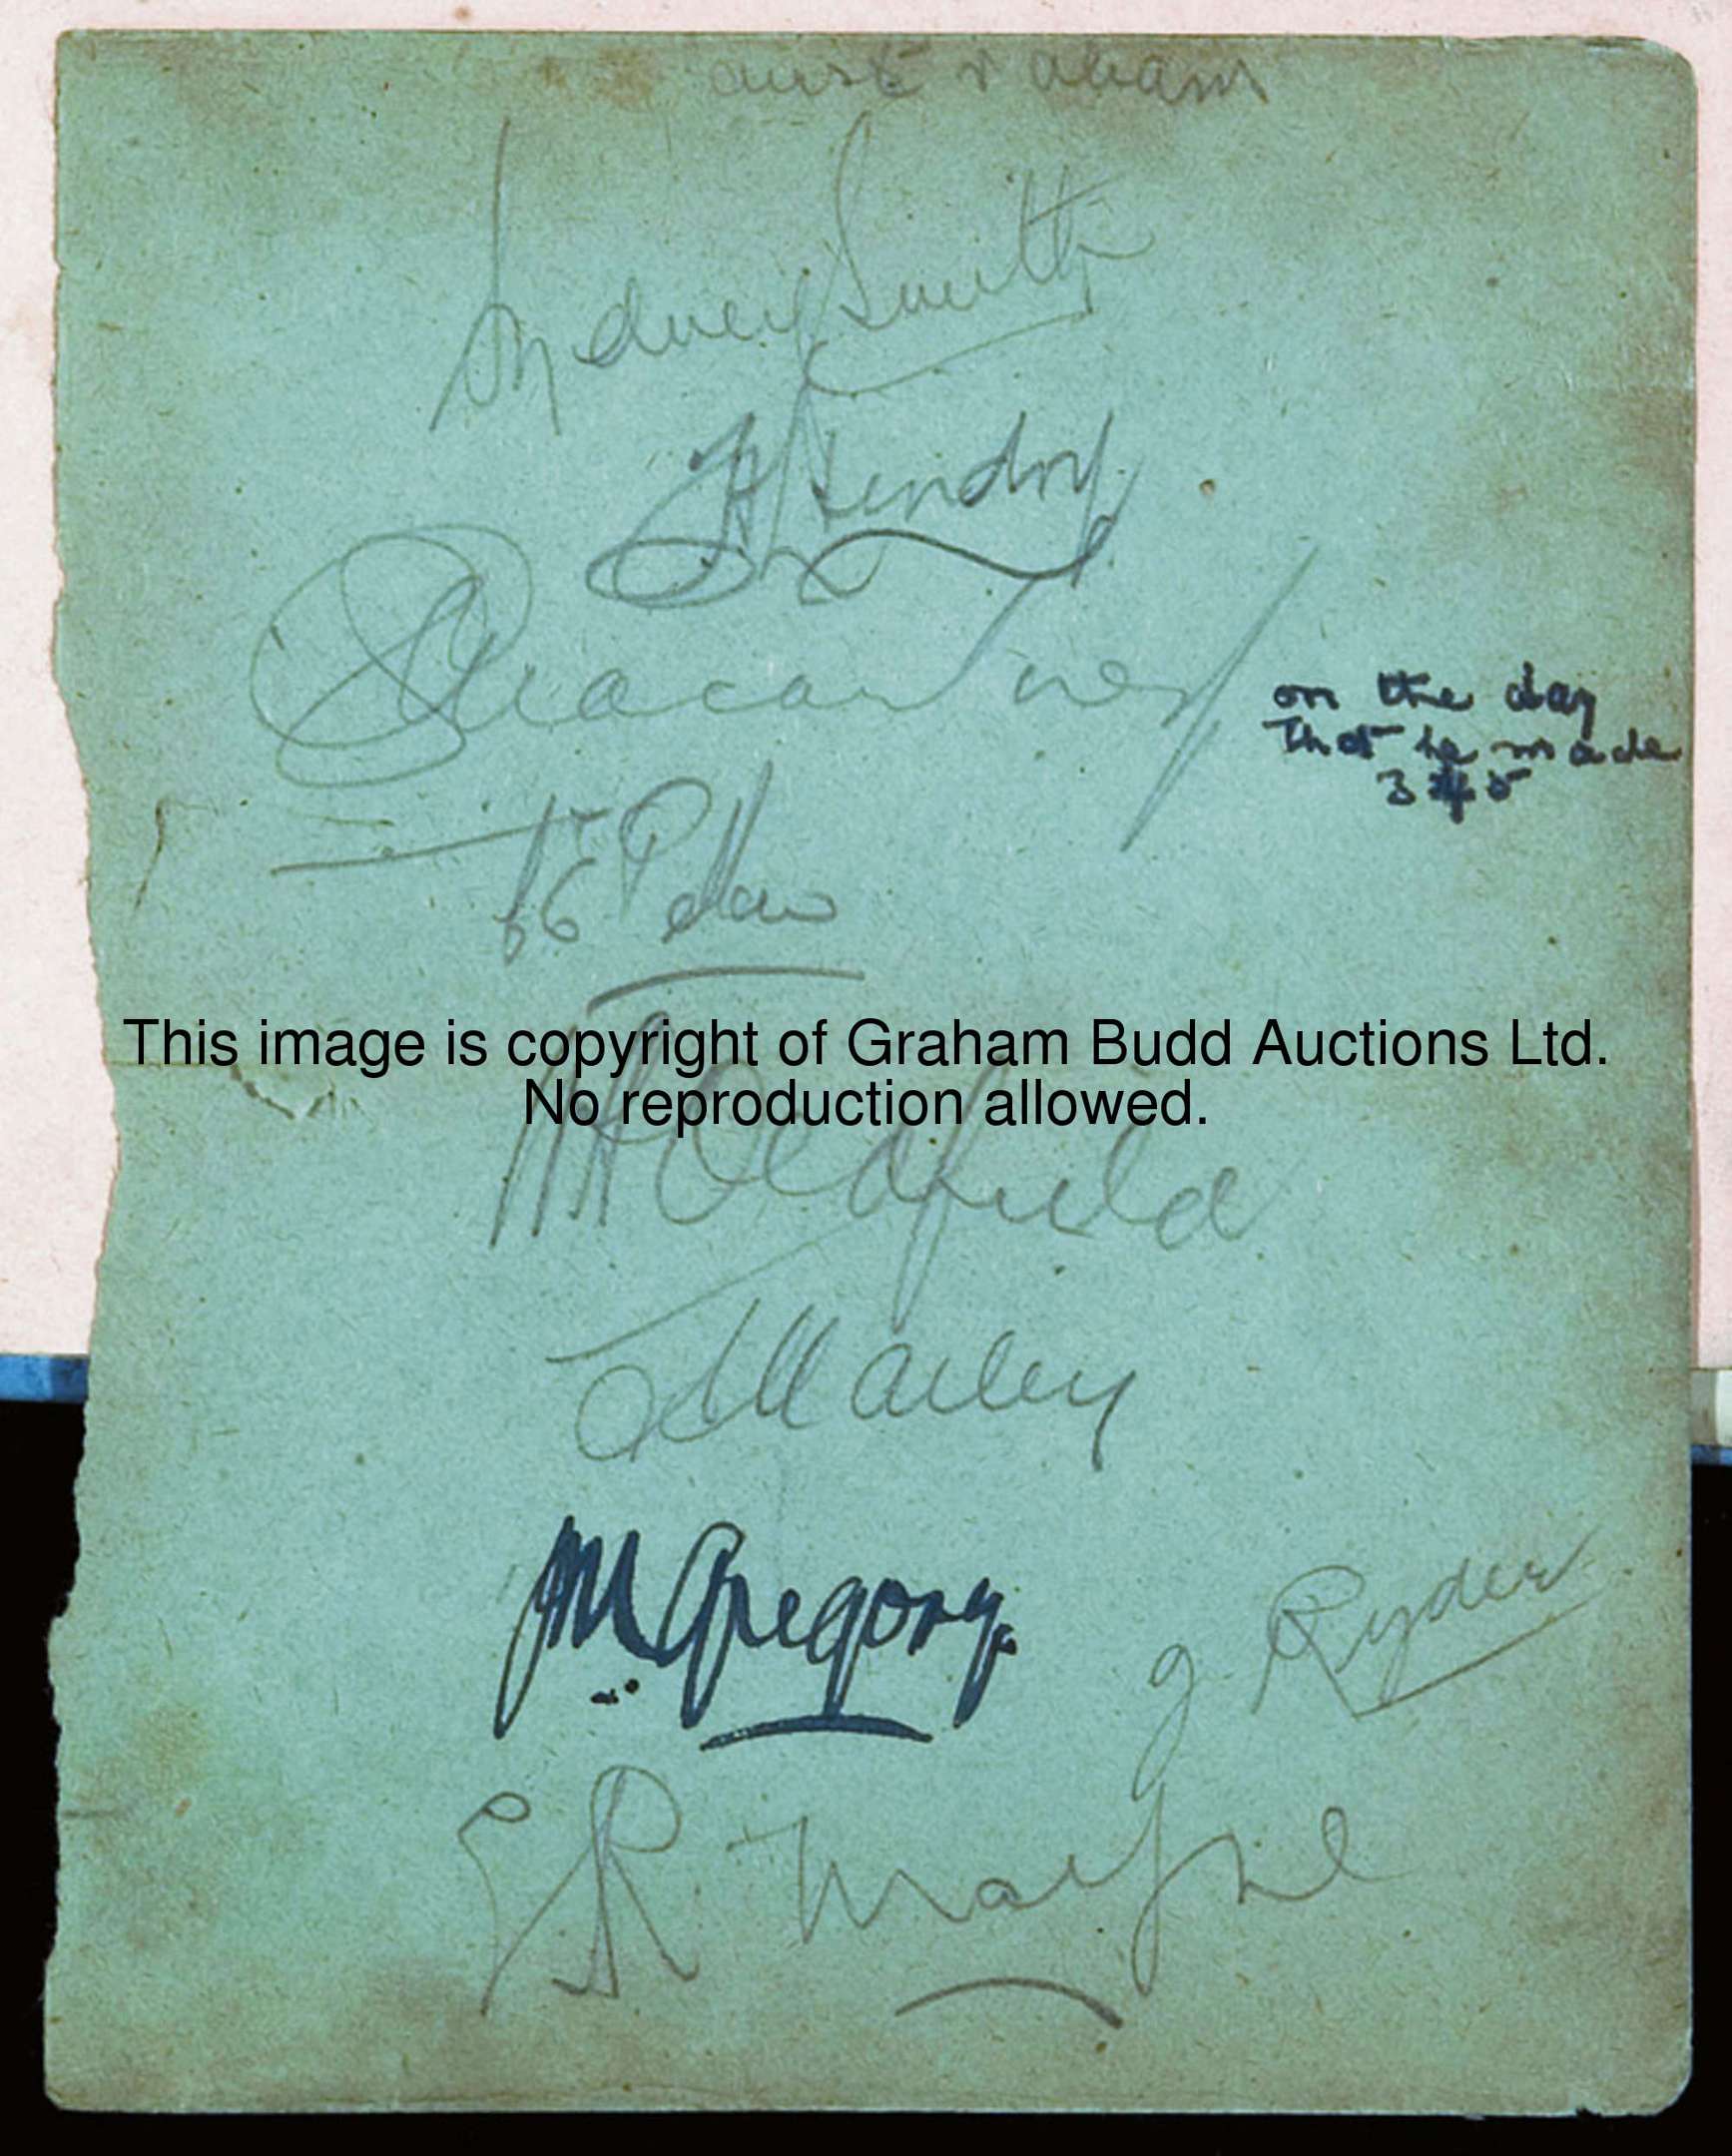 Sydney Smith
H Hendry
C G Macartney
on the day
that he made
345
C E Pellew
This image is copyright of Graham Budd Auctions Ltd.
No reproduction allowed.
W A Oldfield
A Mailey
J M Gregory.
J Ryder
E R Mayne